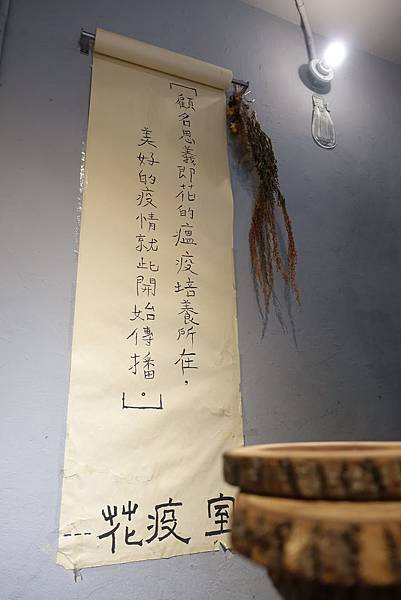 「顧名思義即花的瘟疫培養所在，
美好的疫情就此開始傳播。」
---花疫室